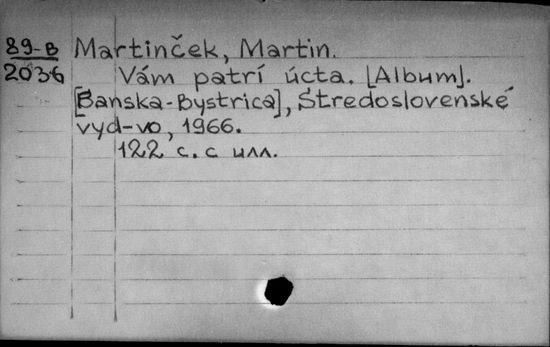 89-В Martinček, Martin.
2036 Vám patrí úcta. [Album].
[Banska-Bystrica], Stredoslovenské
vyd-vo, 1966.
122 с. с илл.